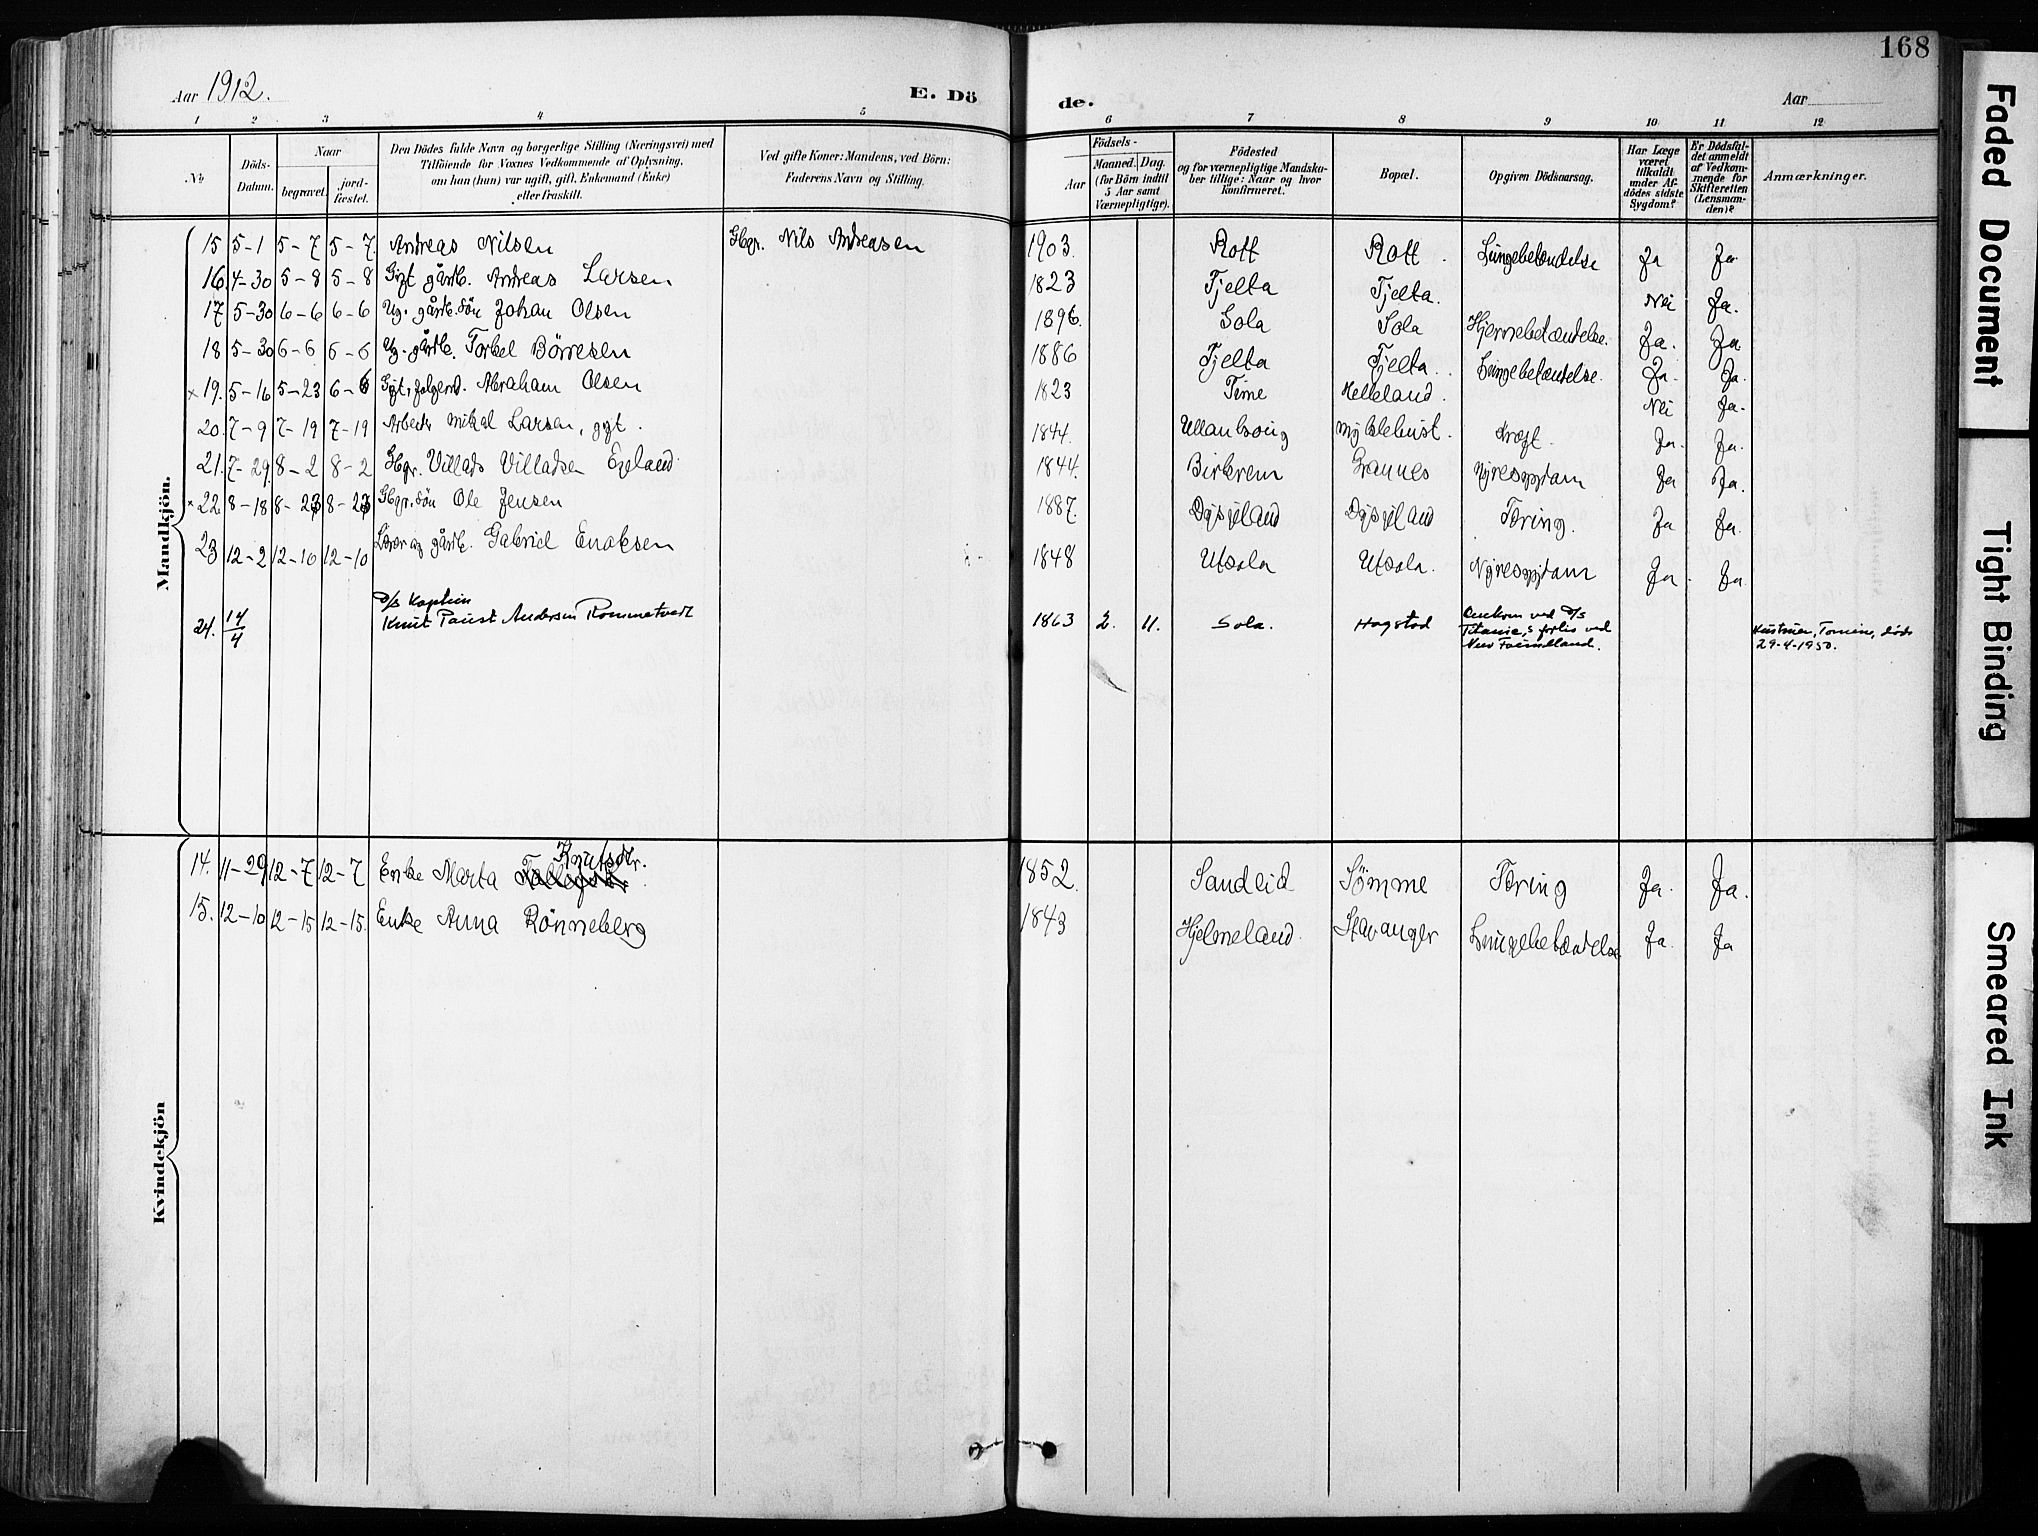 168
Aar 1912.
E. Dö
de.
Aar
1 2 3 4 5 6 7 8 9 10 11 12
No
Döds-Datum.
Naar
begravet.
jord-fæstet.
Den Dödes fulde Navn og borgerlige Stilling (Næringsvei) med
Tilföiende for Voxnes Vedkommende af Oplysning,
om han (hun) var ugift, gift, Enkemand (Enke)
eller fraskilt.
Ved gifte Koner: Mandens, ved Börn:
Faderens Navn og Stilling.
Födsels-
Aar
Maaned. Dag.
(for Börn indtil
5 Aar samt
Værnepligtige).
Födested
og for værnepligtige Mandska-
ber tillige: Naar og hvor
konfirmeret.
Bopæl.
Opgiven Dödsaarsag.
Har Læge
været
tilkaldt
under Af-
dödes sidste
Sygdom?
Er Dödsfal-
det anmeldt
af Vedkom-
mende for
Skifteretten
(Lensman-
den)?
Anmærkninger.
Mandkjön.
15 5-1 5-7 5-7 Andreas Nilsen Gbgr. Nils Andreasen 1903. Rott Rott. Lungebetændelse Ja Ja
16. 4-30 5-8 5-8 Gift gårdb. Andreas Larsen 1823 Tjelta Tjelta. Nei Ja.
17 5-30 6-6 6-6 Ug. gårdb. sön Johan Olsen 1896. Sola Sola Hjernebetændelse. Ja. Ja
18 5-30 6-6 6-6 Ug. gårdb. Torkel Börresen 1886 Tjelta Tjelta. Lungebetændelse. Ja. Ja.
× 19. 5-16 5-23 6-6 Gift, Abraham Olsen 1823 Time Helleland. Nei Ja.
20. 7-9 7-19 7-19 Arbeider Mikal Larsen, gift. 1844. Myklebust. Kræft. Ja. Ja.
21. 7-29 8-2 8-2 Gbgr. Villads Villadsen Egeland 1844. Birkrem Grannes Nyresygdom Ja Ja.
× 22 8-18 Gbgr. sön Ole Jensen 1887. Dysjeland Dysjeland Tæring. Ja Ja.
23 12-2 12-10 12-10 Lærer og gårdb. Gabriel Enoksen 1848 Utsola Utsola. Nyresygdom Ja. Ja.
24. 14/4 D/S Kaptein
Knut Paust Andersen Rommetvedt 1863 2. 11. Sola. Hogstad Omkom ved D/S
Titanic,s forlis ved
New Foundland.
Hustruen, Tomine, döde
29-4-1950.
Kvindekjön
14. 11-29 12-7 12-7 Enke Marta Knutsdtr. 1852. Sandeid Sömme Tæring Ja. Ja.
15. 12-10 12-15 12-15. Enke Anna Rönneberg 1843 Hjelmeland Stavanger Lungebetændelse Ja. Ja
Faded Document
Tight Binding
Smeared Ink